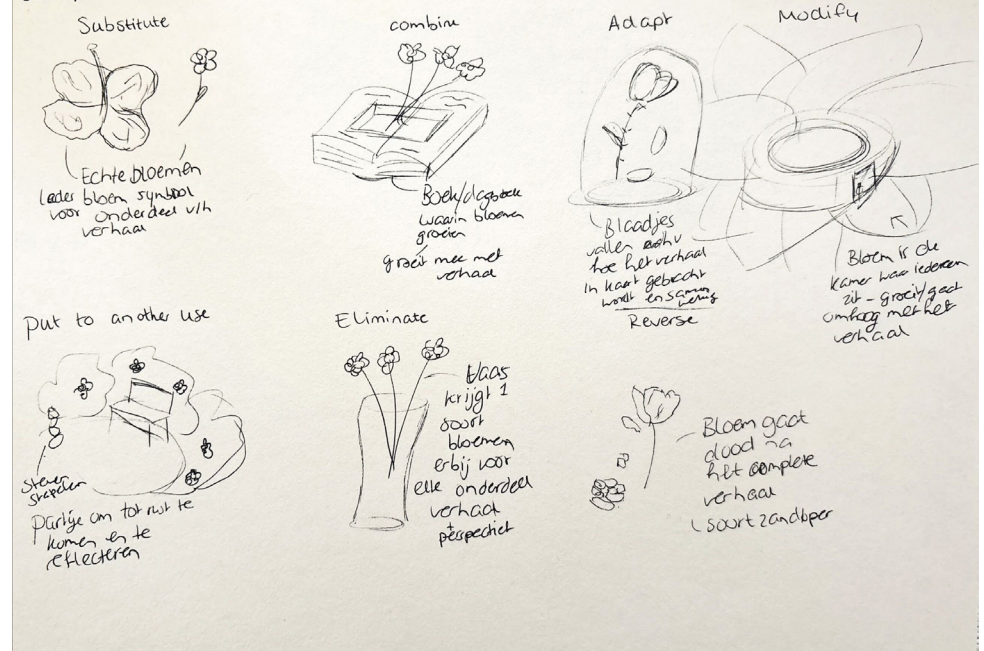 Substitute
Echte bloemen
Ieder bloem symbool
voor onderdeel v/h
verhaal
combine
Boek/dagboek
waarin bloemen
groeien
groeit mee met
verhaal
Adapt
Blaadjes
vallen
hoe het verhaal
in kaart gebracht
wordt en samen
Modify
Bloem is de
kamer waar iedereen
zit - groeit/gaat
omhoog met het
verhaal
Put to another use
stenen
stapelen
Partije om tot rust te
komen en te
reflecteren
Eliminate
Vaas
krijgt 1
soort
bloemen
erbij voor
elk onderdeel
verhaal
+
perspectief
Reverse
Bloem gaat
dood na
het complete
verhaal
soort zandloper